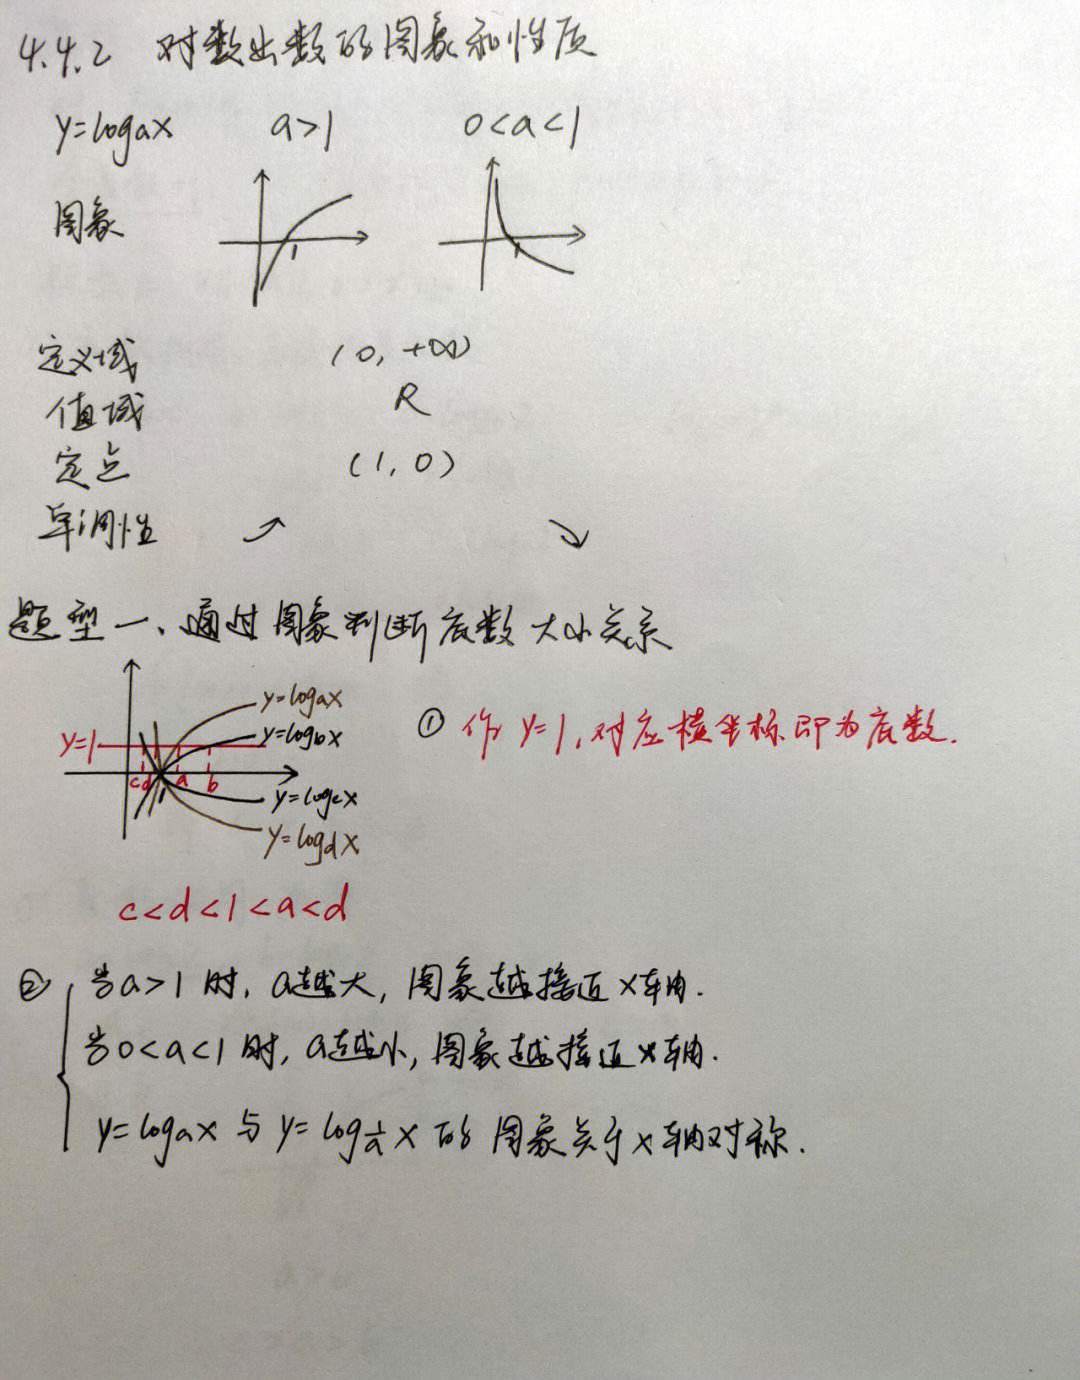 4.4.2 对数出数的图象和性质
y=logax a>1 0<a<1
图象
1 1
定义域 (0,+∞)
值域 R
定点 (1,0)
单调性 ↗ ↘
题型一、通过图象判断底数大小关系
y=logax
y=1 y=logbx
① 作y=1,对应横坐标即为底数.
c d 1 a b
y=logcx
y=logdx
c<d<1<a<d
② 当a>1时,a越大,图象越接近x轴.
当0<a<1时,a越小,图象越接近x轴.
y=logax与y=log1/a x的图象关于x轴对称.